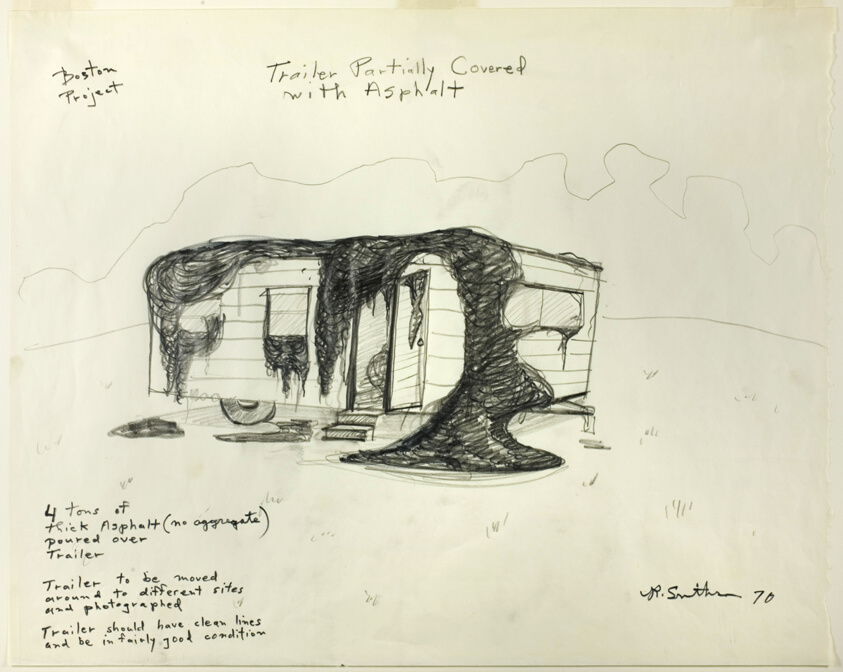 Boston
Project
Trailer Partially Covered
with Asphalt
4 tons of
thick Asphalt (no aggregate)
poured over
Trailer
Trailer to be moved
around to different sites
and photographed
Trailer should have clean lines
and be in fairly good condition
R. Smithson 70